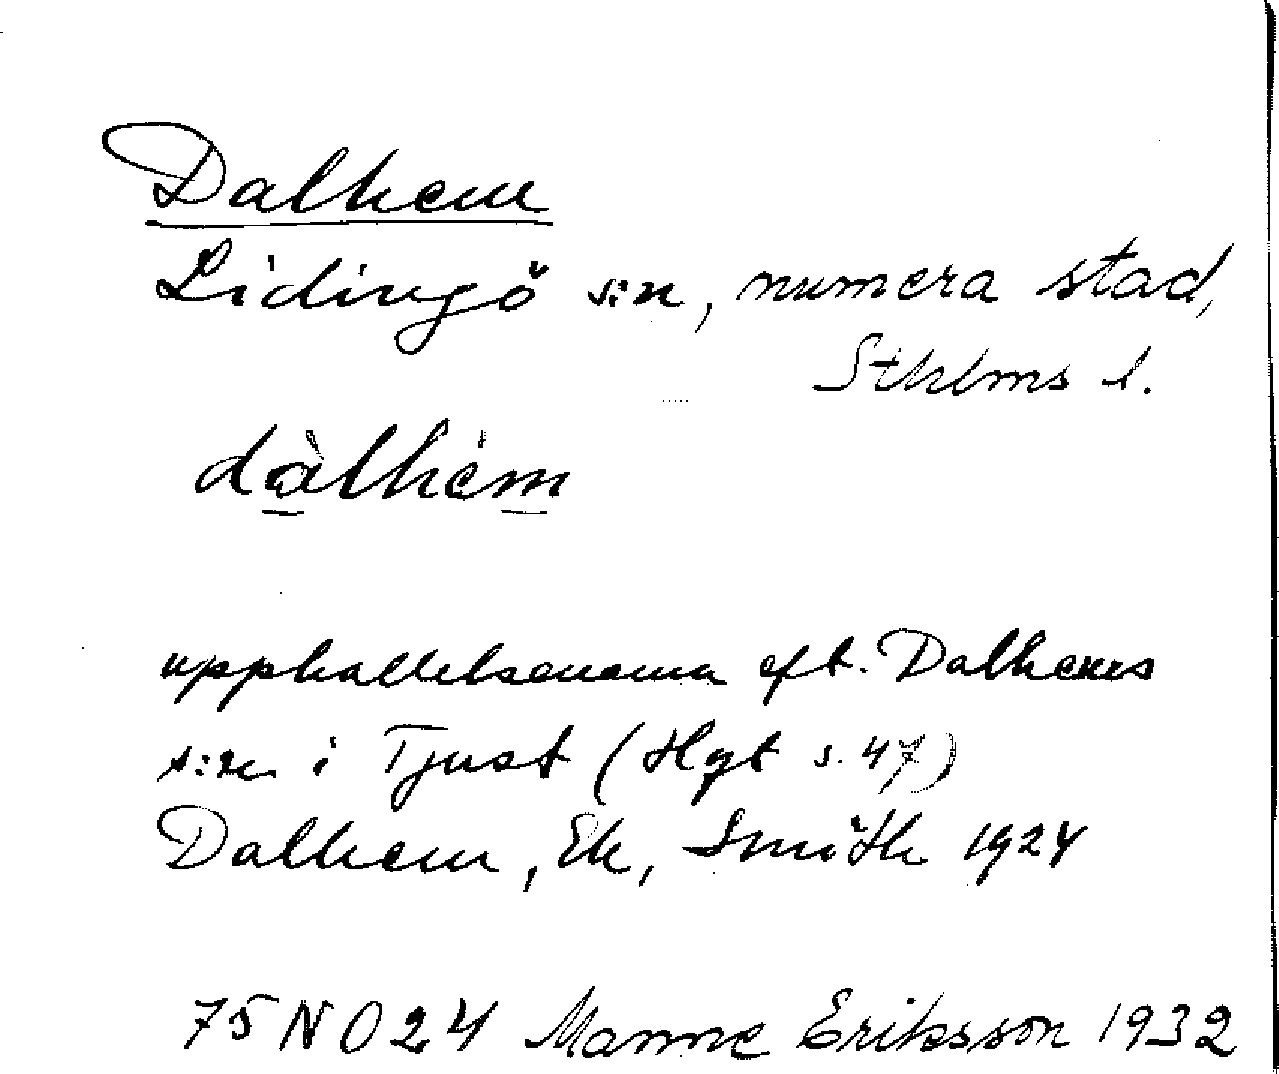 Dalhem
Lidingö s:n, numera stad,
Sthlms l.
dàlhèm
uppkallelsenamn eft. Dalhems
s:n i Tjust (Hgt s. 47)
Dalhem, Ek, Smith 1924
75 NO 24 Manne Eriksson 1932